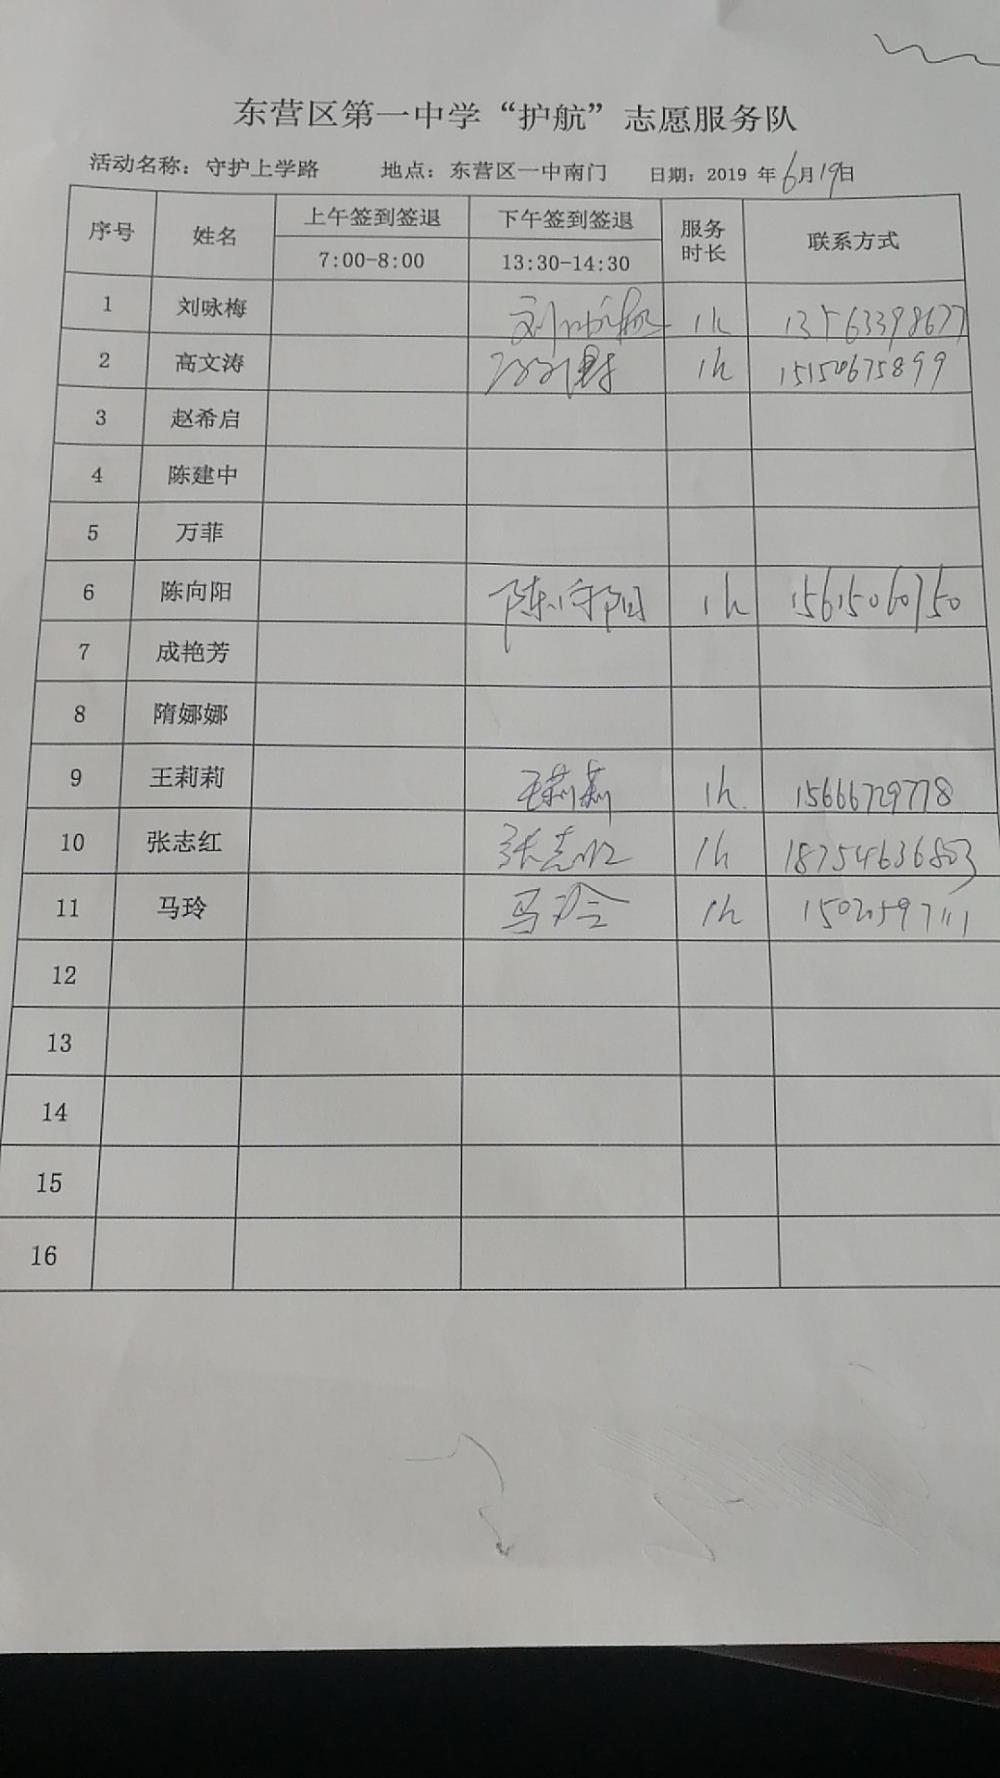 东营区第一中学“护航”志愿服务队
活动名称：守护上学路 地点：东营区一中南门 日期：2019 年6月19日
序号 姓名 上午签到签退 下午签到签退 服务时长 联系方式
7:00-8:00 13:30-14:30
1 刘咏梅 刘咏梅 1h 13563398677
2 高文涛 1h 15150675899
3 赵希启
4 陈建中
5 万菲
6 陈向阳 陈向阳 1h 15615060750
7 成艳芳
8 隋娜娜
9 王莉莉 王莉莉 1h. 15666729778
10 张志红 张志红 1h 18754636803
11 马玲 马玲 1h
12
13
14
15
16